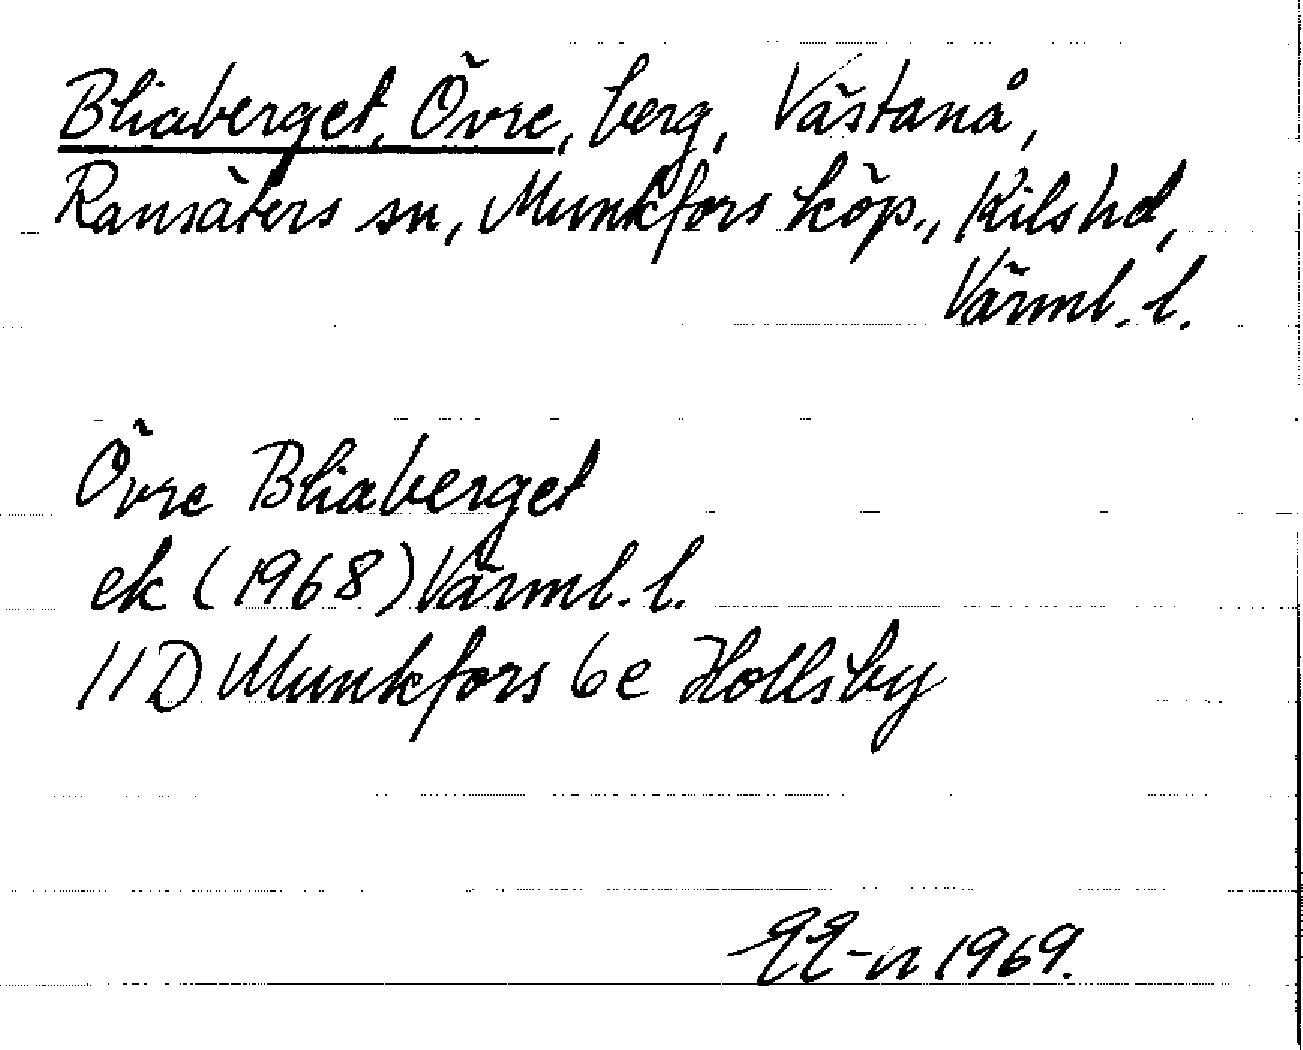 Bliaberget, Övre, berg, Västanå,
Ransäters sn, Munkfors köp., Kils hd,
Värml. l.
Övre Bliaberget
ek (1968) Värml. l.
11 D Munkfors 6 e Hollsby
1969.